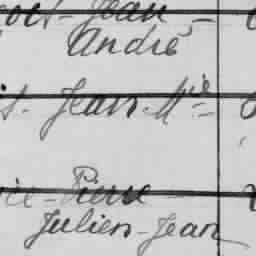 Jean
André
Jean Mie
Pierre
Julien-Jean